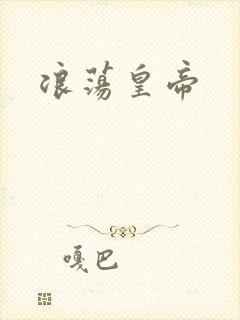 浪荡皇帝
嘎巴